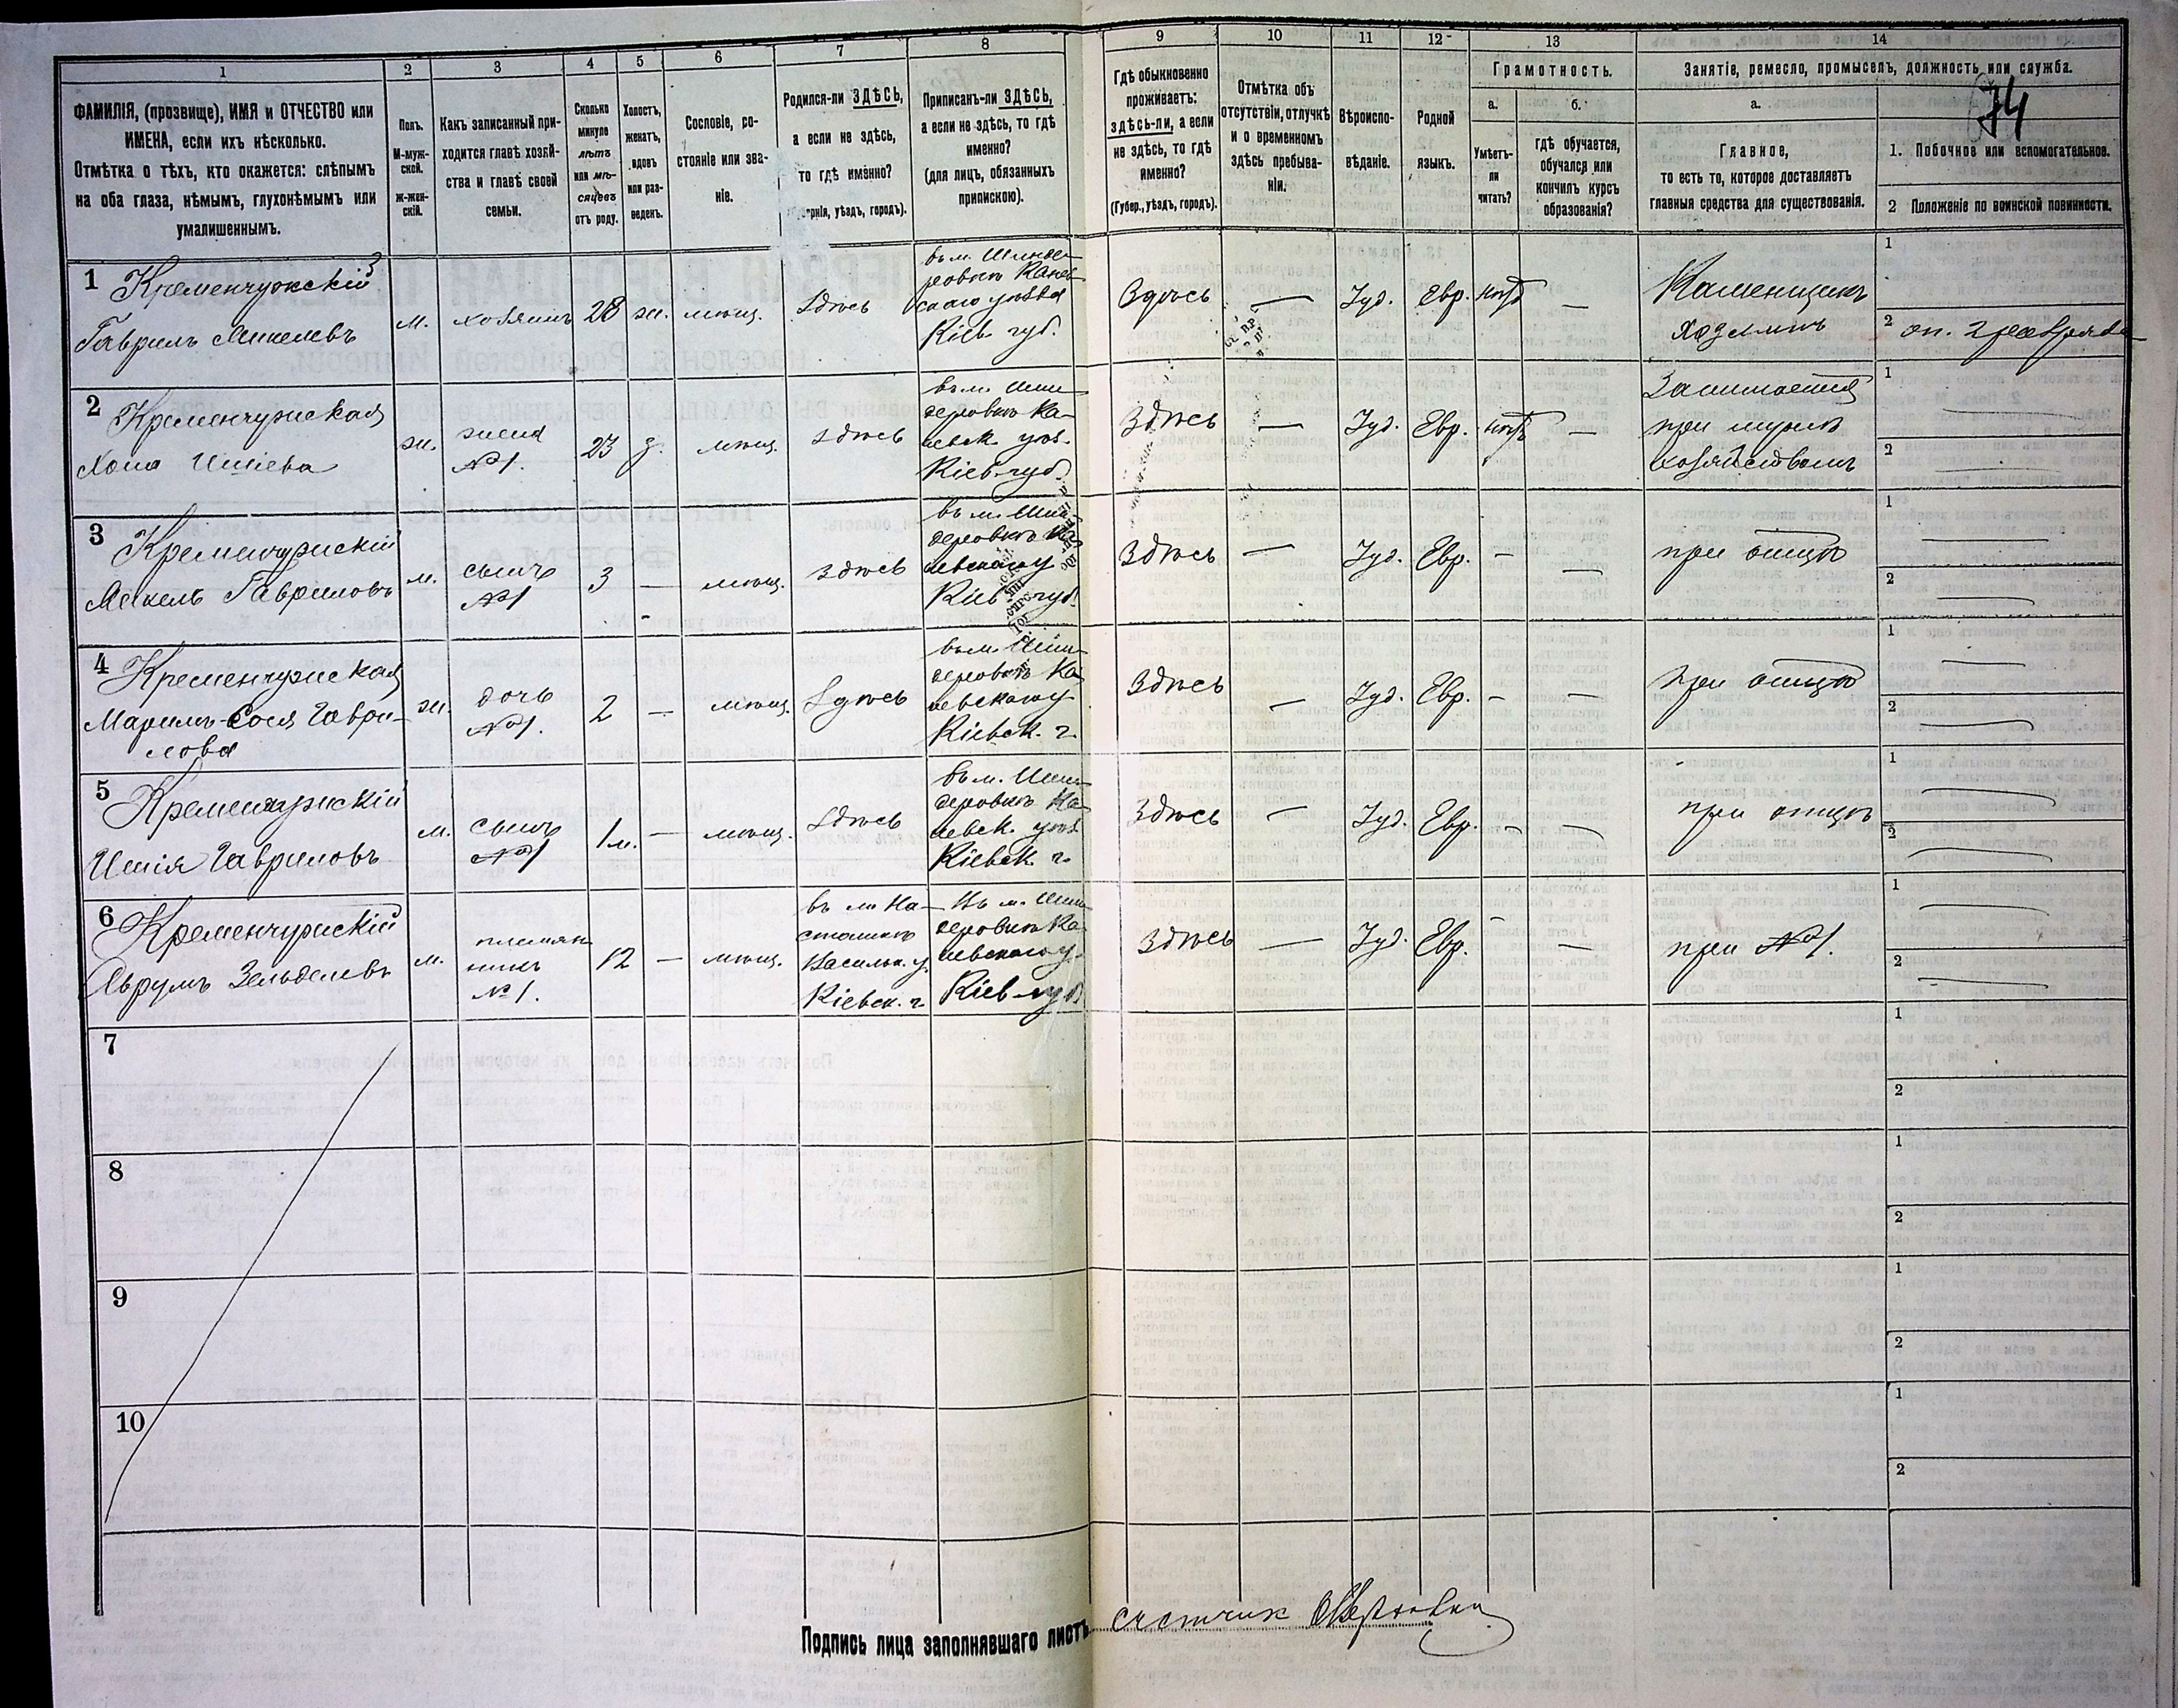 1 2 3 4 5 6 7 8 9 10 11 12 13 14
ФАМИЛІЯ, (прозвище), ИМЯ и ОТЧЕСТВО или
ИМЕНА, если ихъ нѣсколько.
Отмѣтка о тѣхъ, кто окажется: слѣпымъ
на оба глаза, нѣмымъ, глухонѣмымъ или
умалишеннымъ.
Полъ.
М-муж-
ской.
ж-жен-
скій.
Какъ записанный при-
ходится главѣ хозяй-
ства и главѣ своей
семьи.
Сколько
минуло
лѣтъ
или мѣ-
сяцевъ
отъ роду.
Холостъ,
женатъ,
вдовъ
или раз-
веденъ.
Сословіе, со-
стояніе или зва-
ніе.
Родился-ли ЗДѢСЬ,
а если не здѣсь,
то гдѣ именно?
рнія, уѣздъ, городъ).
Приписанъ-ли ЗДѢСЬ,
а если не здѣсь, то гдѣ
именно?
(для лицъ, обязанныхъ
припискою).
Гдѣ обыкновенно
проживаетъ:
здѣсь-ли, а если
не здѣсь, то гдѣ
именно?
(Губер., уѣздъ, городъ).
Отмѣтка объ
отсутствіи, отлучкѣ
и о временномъ
здѣсь пребыва-
ніи.
Вѣроиспо-
вѣданіе.
Родной
языкъ.
Грамотность.
а.
Умѣетъ-
ли
читать?
б.
гдѣ обучается,
обучался или
кончилъ курсъ
образованія?
Занятіе, ремесло, промыселъ, должность или служба.
а.
Главное,
то есть то, которое доставляетъ
главныя средства для существованія.
74
1. Побочное или вспомогательное.
2 Положеніе по воинской повинности.
1 Кременчужскій
Гаврилъ Мипелевъ
м.
хозяинъ
28
ж.
мѣщ.
здѣсь
въ м. Шенде-
ровкѣ Канев-
скаго уѣзда
Кіев. губ.
Здѣсь
—
Іуд.
Евр.
нѣтъ
—
Каменщикъ
Хозяинъ
1
2
2 Кременчужская
Хона Ишіева
ж.
жена
№ 1.
23
з.
мѣщ.
здѣсь
въ м. Шен-
деровкѣ Ка-
невск. уѣз.
Кіев. губ.
Здѣсь
—
Іуд.
Евр.
нѣтъ
—
Занимается
при мужѣ
хозяйствомъ
1 —
2 —
3 Кременчужскій
Мекель Гавриловъ
м.
сынъ
№ 1
3
—
мѣщ.
здѣсь
въ м. Шен-
деровкѣ Ка-
невскаго у
Кіев. губ.
Здѣсь
—
Іуд.
Евр.
—
—
при отцѣ
1 —
2 —
4 Кременчужская
Маримъ-Сося Гаври-
лова
ж.
дочь
№ 1.
2
—
мѣщ.
здѣсь
въ м. Шен-
деровкѣ Ка-
невскаго у
Кіевск. г.
Здѣсь
—
Іуд.
Евр.
—
—
при отцѣ
1 —
2 —
5 Кременчужскій
Ишія Гавриловъ
м.
сынъ
№ 1
1 м.
—
мѣщ.
здѣсь
въ м. Шен-
деровкѣ Ка-
невск. уѣз.
Кіевск. г.
Здѣсь
—
Іуд.
Евр.
—
—
при отцѣ
1 —
2 —
6 Кременчужскій
Аврумъ Зельделевъ
м.
племян-
никъ
№ 1.
12
—
мѣщ.
въ м. На-
сташкѣ
Васильк. у.
Кіевск. г.
Въ м. Шен-
деровкѣ Ка-
невскаго у.
Кіев. губ.
Здѣсь
—
Іуд.
Евр.
—
—
при № 1.
1 —
2 —
7
1
2
8
1
2
9
1
2
10
1
2
Подпись лица заполнявшаго листъ счетчик